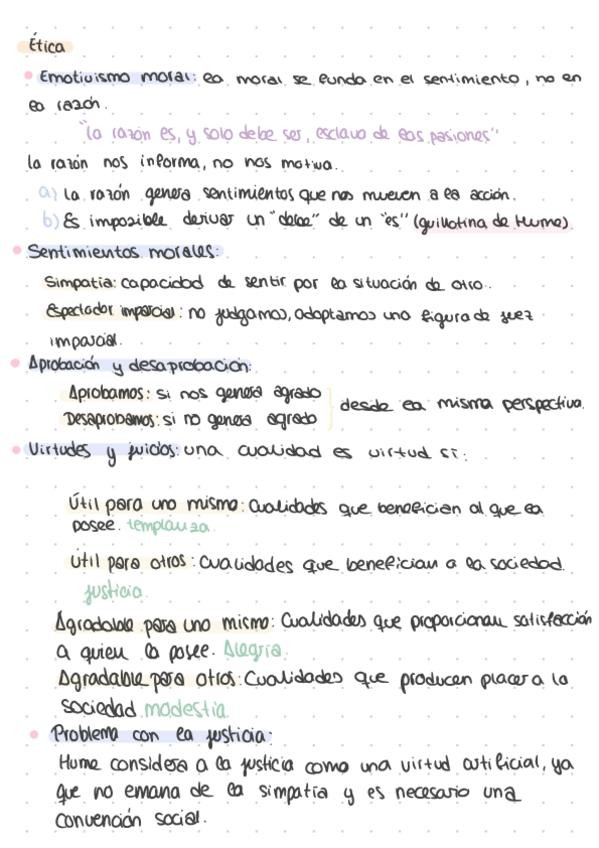 Ética
Emotivismo moral: la moral se funda en el sentimiento, no en
la razón.
"la razón es, y solo debe ser, esclava de las pasiones"
la razón nos informa, no nos motiva.
a) La razón genera sentimientos que nos mueven a la acción.
b) Es imposible derivar un "debe" de un "es" (guillotina de Hume).
Sentimientos morales:
Simpatía: capacidad de sentir por la situación de otro.
Espectador imparcial: no juzgamos, adoptamos una figura de juez
imparcial.
Aprobación y desaprobación:
Aprobamos: si nos genera agrado
Desaprobamos: si no genera agrado
desde la misma perspectiva.
Virtudes y juicios: una cualidad es virtud si:
Útil para uno mismo: Cualidades que benefician al que la
posee. templanza.
Útil para otros: Cualidades que benefician a la sociedad.
justicia.
Agradable para uno mismo: Cualidades que proporcionan satisfacción
a quien la posee. Alegría.
Agradable para otros: Cualidades que producen placer a la
sociedad modestia.
Problema con la justicia:
Hume considera a la justicia como una virtud artificial, ya
que no emana de la simpatía y es necesario una
convención social.